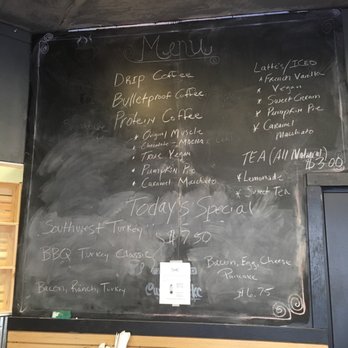 Menu
Drip Coffee
Bulletproof Coffee
Protein Coffee
* Original Muscle
* Chocolate - Mocha
* True Vegan
* Pumpkin Pie
* Caramel Machiato
Latte's / ICED
* French Vanilla
* Vegan
* Sweet Cream
* Pumpkin Pie
* Caramel
Machiato
TEA (All Natural)
$3.00
* Lemonade
* Sweet Tea
Today's Special
$7.50
Southwest Turkey
BBQ Turkey Classic
Bacon, Ranch, Turkey
Bacon, Egg, Cheese
Pancake
$6.75